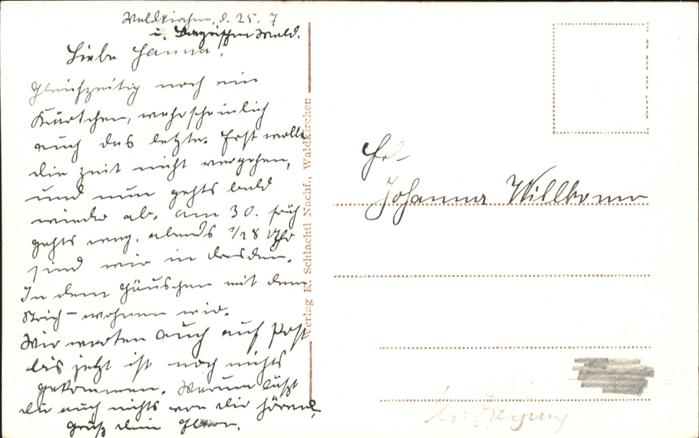 Waldkirchen, d. 25. 7
i. Bayrischen Wald.
Liebe Hanna!
Gleichzeitig noch ein
Kärtchen, wahrscheinlich
auch das letzte. Erst wollte
die Zeit nicht vergehen,
und nun gehts bald
wieder ab. Am 30. früh
gehts weg, abends 1/28 Uhr
sind wir in Dresden.
In dem Häuschen mit dem
Strich – wohnen wir.
Wir warten auch auf Post
bis jetzt ist noch nichts
gekommen. Warum läßt
du auch nichts von dir hören,
Gruß dein
Verlag K. Schlachtl Nachf., Waldkirchen
Frl.
Johanna Willkomm